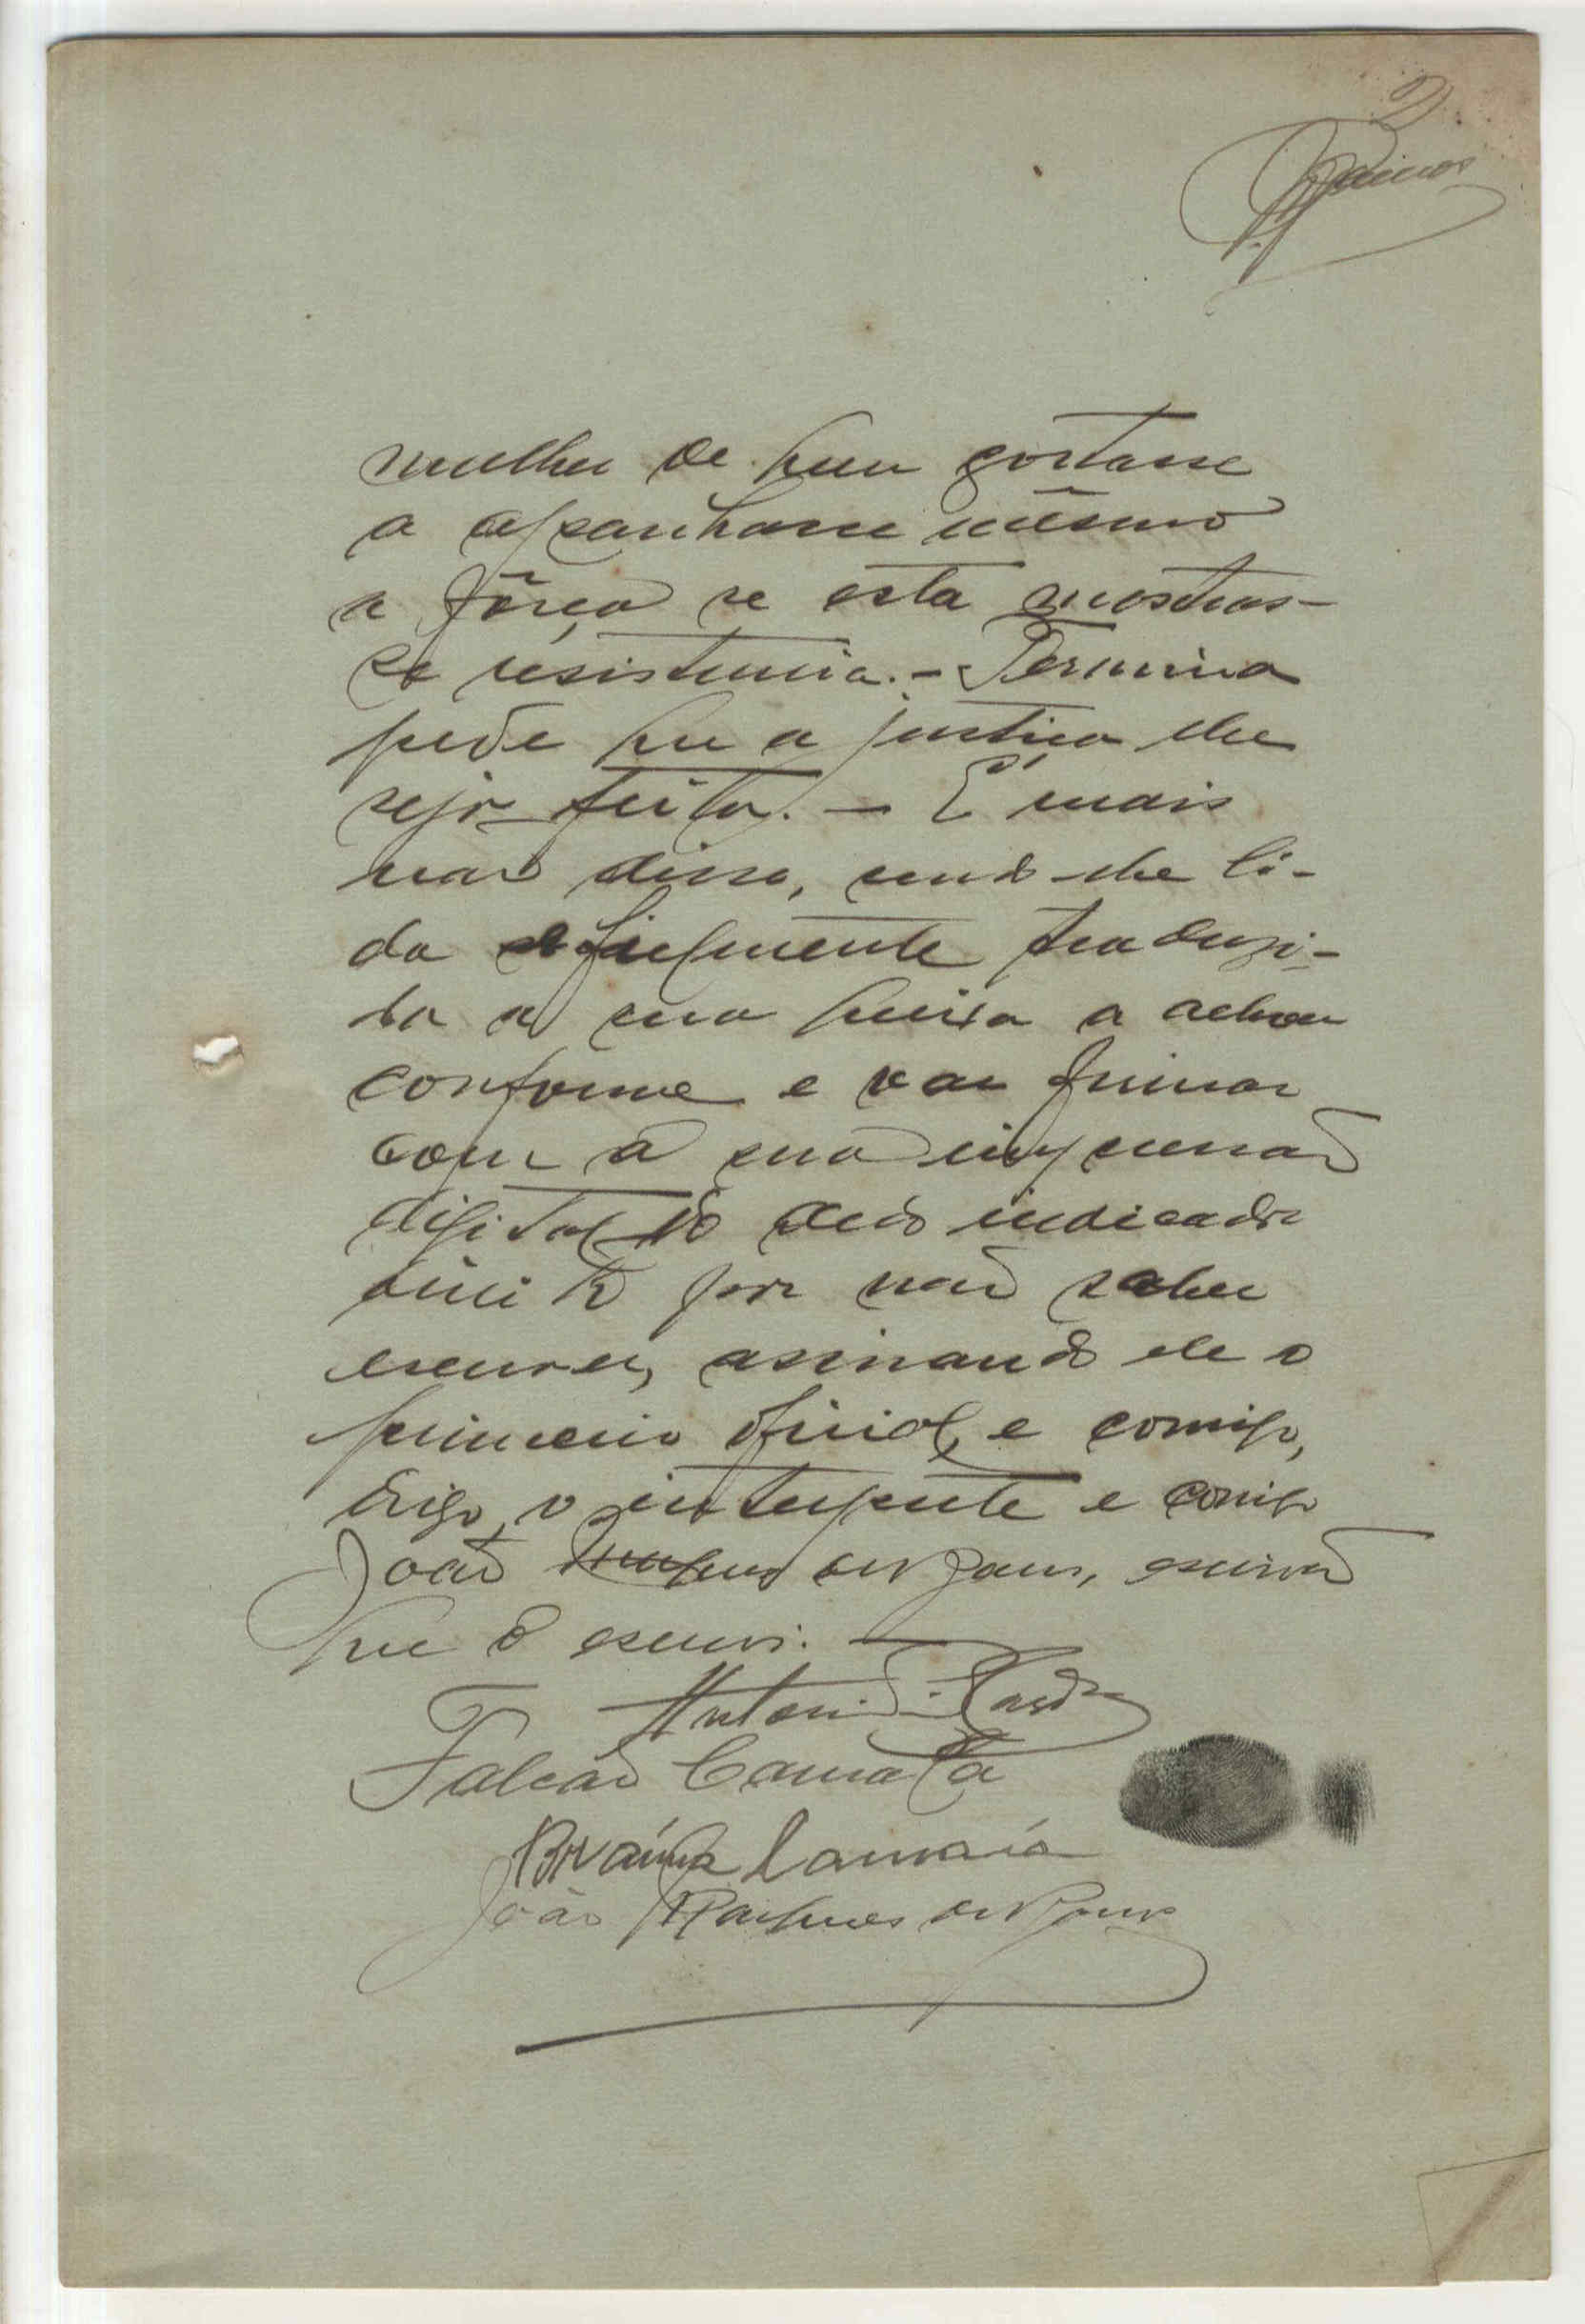 2
mulher de quem gostasse
a apanhasse mêsmo
a fôrça se esta mostras-
se resistencia. - Termina
pede que a justiça lhe
seja feita. — E mais
não disse, sendo-lhe li-
da e fielmente traduzi-
da a sua queixa a achou
conforme e vai firmar
com a sua impressão
digital do dedo indicador
direito por não saber
escrever, assinando ele o
primeiro oficial, e comigo,
digo, o interprete e comigo
João Marques de Pam, escrivão
que o escrevi.
Antonio
Falcão Camará
Camará
João Marques de